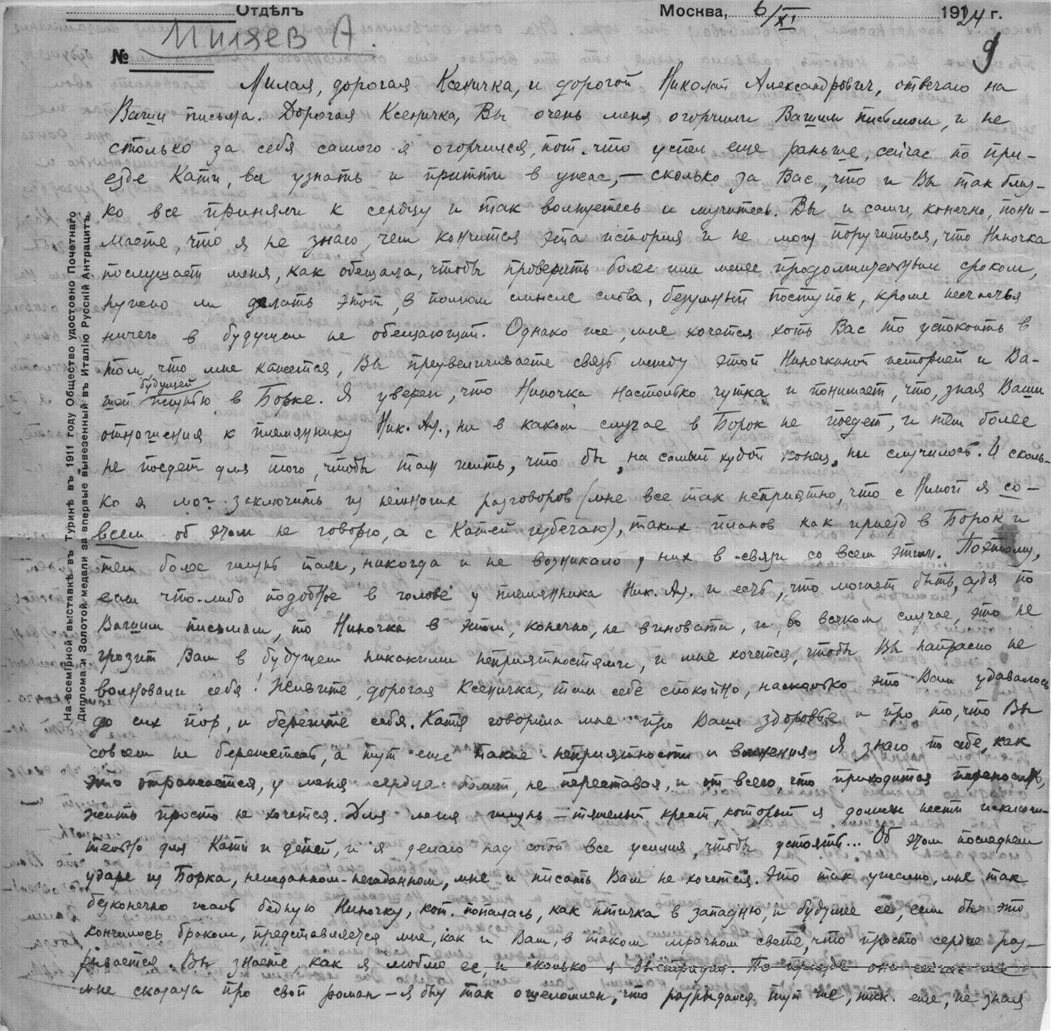 Отдѣлъ Москва, 6/XI 1924 г.
№ Миляев А. 9
Милая, дорогая Ксеничка, и дорогой Николай Александрович, отвечаю на
Ваши письма. Дорогая Ксеничка, Вы очень меня огорчили Вашим письмом, и не
столько за себя самого я огорчился, пот. что успел еще раньше, сейчас по при-
езде Кати, все узнать и притти в ужас, — сколько за Вас, что и Вы так близ-
ко все приняли к сердцу и так волнуетесь и мучитесь. Вы и сами, конечно, пони-
маете, что я не знаю, чем кончится эта история и не могу поручиться, что Ниночка
послушает меня, как обещала, чтобы проверить более или менее продолжительным сроком,
нужно ли делать этот, в полном смысле слова, безумный поступок, кроме несчастья
ничего в будущем не обещающий. Однако же, мне хочется хоть Вас то успокоить в
том, что мне кажется, Вы преувеличиваете связь между этой Ниночкиной историей и Ва-
шей будущей жизнью в Борке. Я уверен, что Ниночка настолько чутка и понимает, что, зная Ваши
отношения к племяннику Ник. Ал., ни в каком случае в Борок не поедет, и тем более
не поедет для того, чтобы там жить, что бы, на самый худой конец, ни случилось. И сколь-
ко я мог заключить из немногих разговоров (мне все так неприятно, что с Ниной я со-
всем об этом не говорю, а с Катей избегаю), таких планов как приезд в Борок и
тем более жизнь там, никогда и не возникало у них в связи со всем этим. Поэтому,
если что-либо подобное в голове у племянника Ник. Ал. и есть, что может быть, судя по
Вашим письмам, то Ниночка в этом, конечно, не виновата, и, во всяком случае, это не
грозит Вам в будущем никакими неприятностями, и мне хочется, чтобы Вы напрасно не
волновали себя! Живите, дорогая Ксеничка, там себе спокойно, насколько это Вам удавалось
до сих пор, и берегите себя. Катя говорила мне про Ваше здоровье и про то, что Вы
совсем не бережетесь, а тут еще такие неприятности и волнения. Я знаю по себе, как
это отражается, у меня сердце болит, не переставая, и от всего, что приходится переносить,
жить просто не хочется. Для меня жизнь — тяжелый крест, который я должен нести исключи-
тельно для Кати и детей, и я делаю над собой все усилия, чтобы устоять... Об этом последнем
ударе из Борка, нежданном-негаданном, мне и писать Вам не хочется. Это так ужасно, мне так
бесконечно жаль бедную Ниночку, кот. попалась, как птичка в западню, и будущее ее, если бы это
кончилось браком, представляется мне, как и Вам, в таком мрачном свете, что просто сердце раз-
рывается. Вы знаете, как я люблю ее, и сколько я выстрадал. По приезде она сейчас же
мне сказала про свой роман — я был так ошеломлен, что разрыдался тут же, еще, не зная
На всемірной выставкѣ въ Туринѣ въ 1911 году Общество удостоено Почетнаго
Диплома и Золотой медали за впервые вывезенный въ Италію Русскій Антрацитъ.